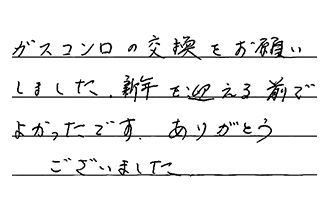 ガスコンロの交換をお願い
しました。新年を迎える前で
よかったです。ありがとう
ございました